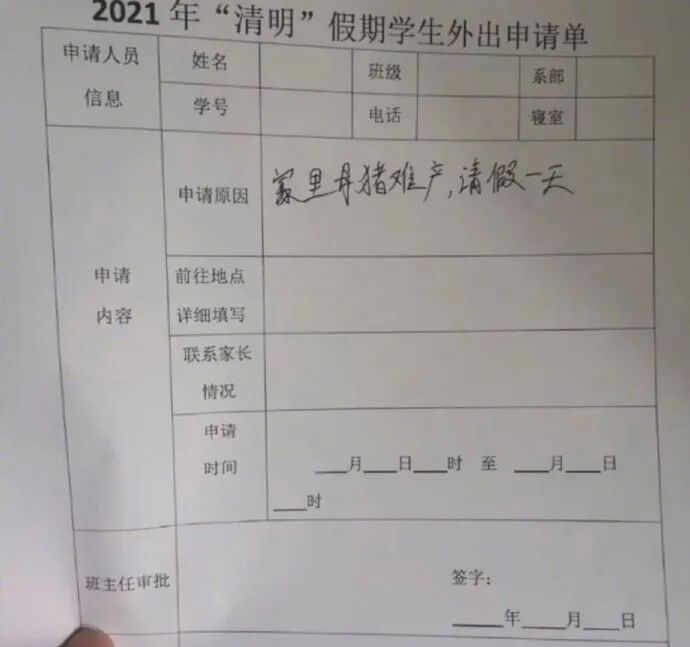 2021 年“清明”假期学生外出申请单
申请人员 姓名 班级 系部
信息 学号 电话 寝室
申请原因 家里母猪难产,请假一天
申请 前往地点
内容 详细填写
联系家长
情况
申请
时间 ___月___日___时 至 ___月___日
___时
班主任审批 签字:
____年___月___日